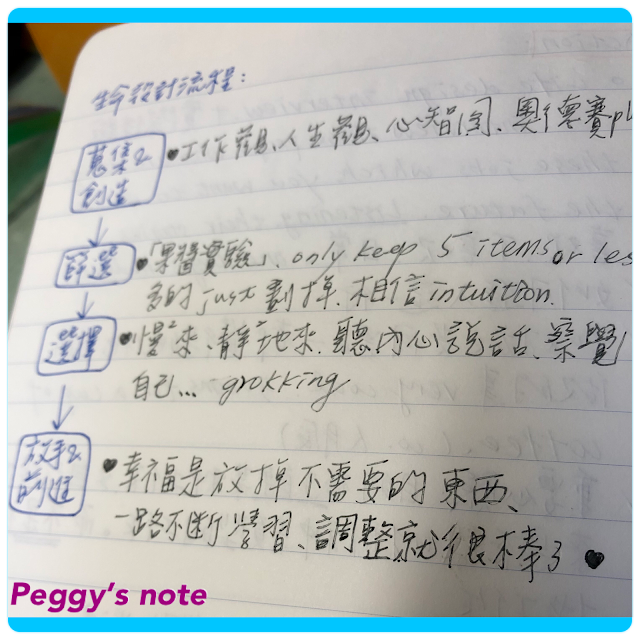 生命設計流程:
蒐集&
創造
♥工作觀、人生觀、心智圖、奧德賽pl
篩選
♥「果醬實驗」、only keep 5 items or les
多的 just 劃掉、相信 intuition.
選擇
♥慢²來、靜²地來、聽內心說話、察覺
自己... grokking
放手&
前進
♥幸福是放掉不需要的東西、
一路不斷學習、調整就很棒了♥
Peggy's note